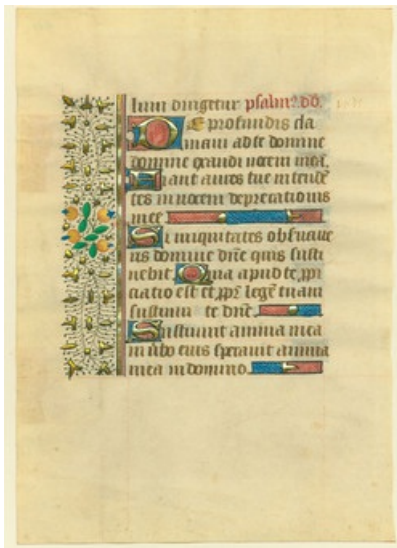 luni dirigetur psalm9. dd.
De profundis cla
maui ad te domine
domine exaudi uocem meā
Fiant aures tue intendē
tes in uocem deprecationis
mee
Si iniquitates obseruaue
ris domine dn̄e quis susti
nebit Quia apud te ꝓpi
ciatio est et ꝓpt̄ legē tuam
sustinui te dn̄e
Sustinuit anima mea
in ūbo eius sperauit anima
mea in domino